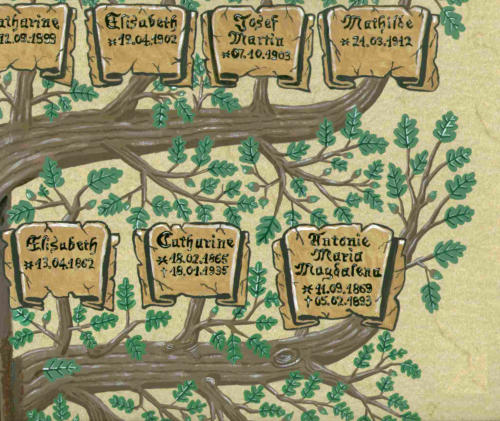 Catharine
12.09.1899
Elisabeth
* 19.04.1902
Josef
Martin
* 07.10.1903
Mathilde
* 21.03.1912
Elisabeth
* 13.04.1862
Catharine
* 18.02.1865
† 18.01.1935
Antonie
Maria
Magdalena
* 11.09.1869
† 05.02.1893